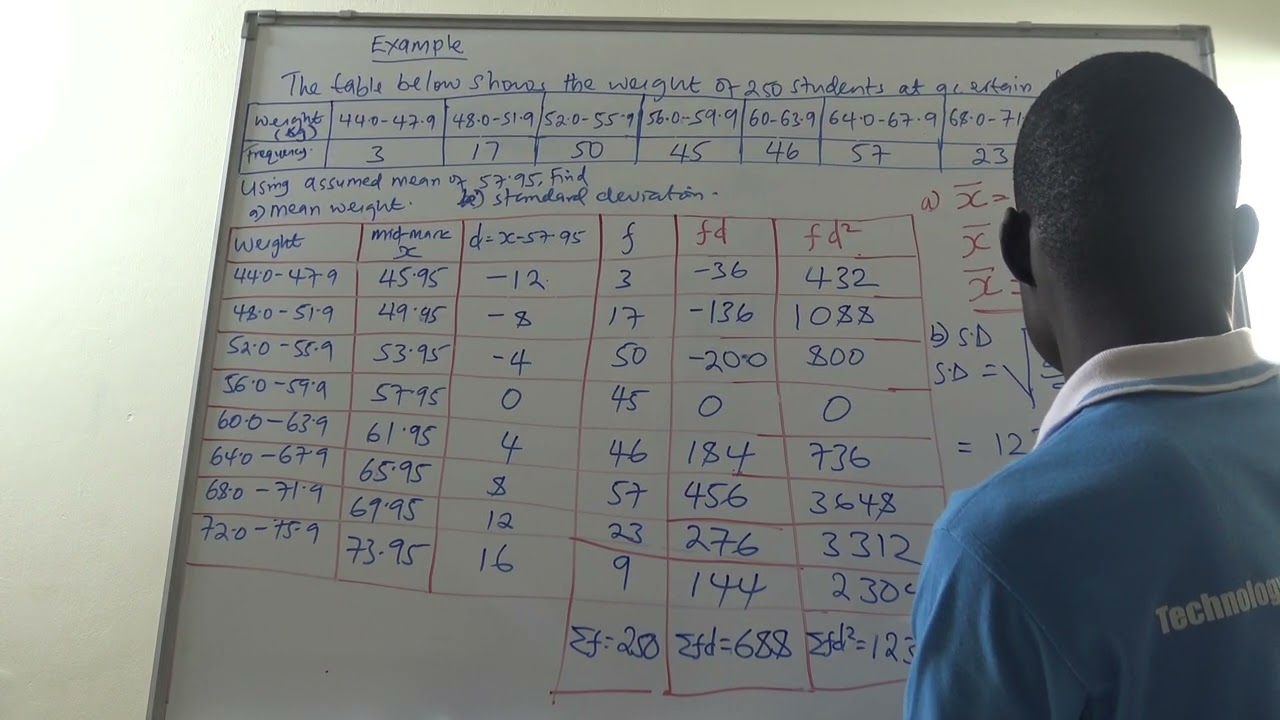 Example
The table below shows the weight of 250 students at a certain
Weight (kg) 44.0-47.9 48.0-51.9 52.0-55.9 56.0-59.9 60-63.9 64.0-67.9 68.0-71.
Frequency. 3 17 50 45 46 57 23
Using assumed mean of 57.95, find
a) mean weight. b) standard deviation.
Weight mid-mark x d=x-57.95 f fd fd²
44.0-47.9 45.95 -12 3 -36 432
48.0-51.9 49.95 -8 17 -136 1088
52.0-55.9 53.95 -4 50 -200 800
56.0-59.9 57.95 0 45 0 0
60.0-63.9 61.95 4 46 184 736
64.0-67.9 65.95 8 57 456 3648
68.0-71.9 69.95 12 23 276 3312
72.0-75.9 73.95 16 9 144 230
Σf=250 Σfd=688 Σfd²=12
a) x̄ =
x̄
x̄ =
b) S.D
S.D = √
= 12
Technology